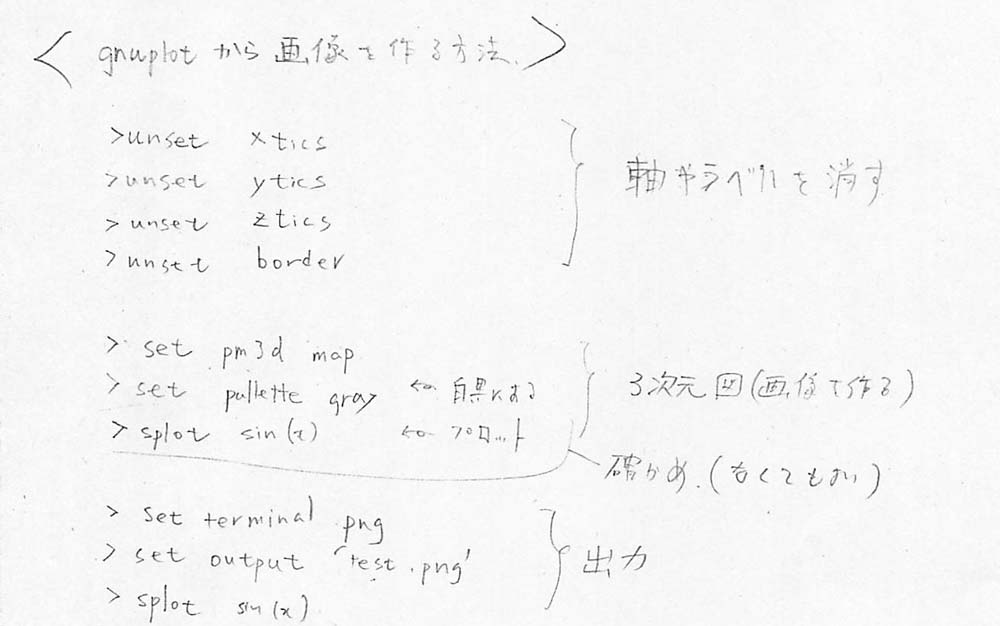 < gnuplot から 画像を作る方法. >
>unset xtics
>unset ytics
>unset ztics
>unset border
軸やラベルを消す
> set pm3d map
> set pallette gray ← 白黒にする
> splot sin(x) ← プロット
3次元図(画像を作る)
確かめ.(なくてもよい)
> set terminal png
> set output 'test.png'
> splot sin(x)
出力